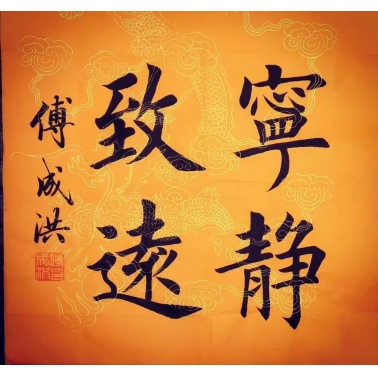 寧靜
致遠
傅成洪